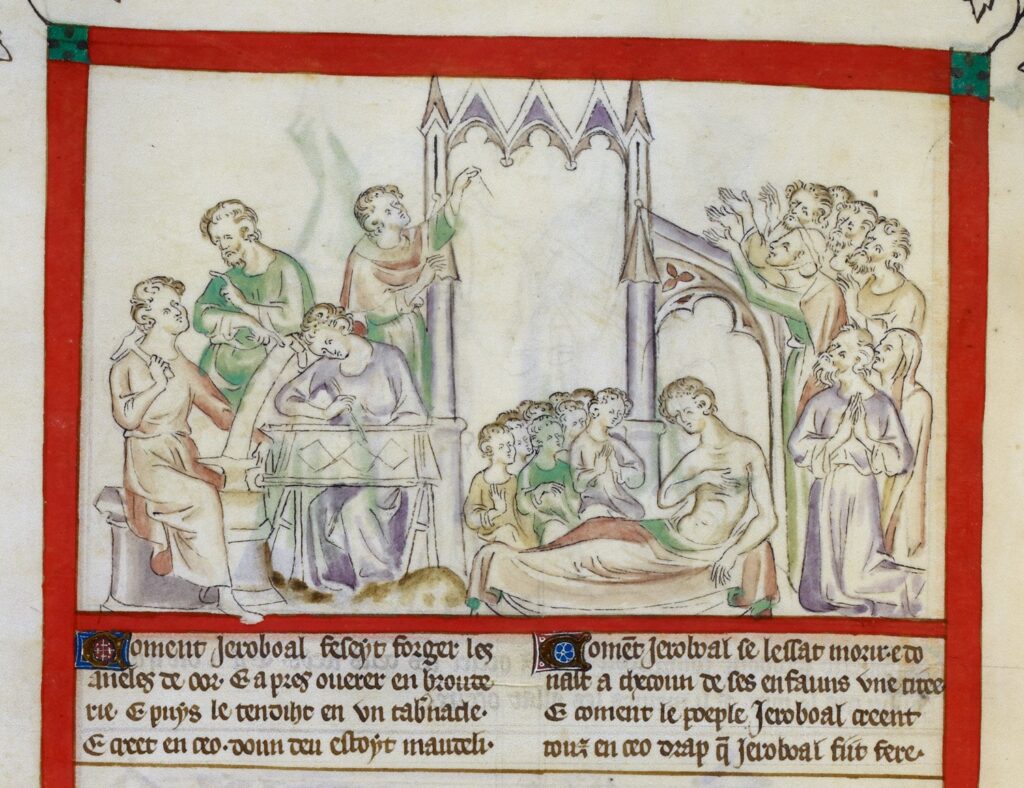 Coment Jeroboal feseyt forger les
aneles de oor. E apres ouerer en broute
rie. E puys le tendiht en vn tabnacle.
E creet en ceo. doun deu estoyt maudeli.
Coment Jeroboal se lessat morir. e do
nait a checoun de ses enfauns vne
E coment le poeple Jeroboal creent
touz en ceo drap q̃ Jeroboal fiit fere.